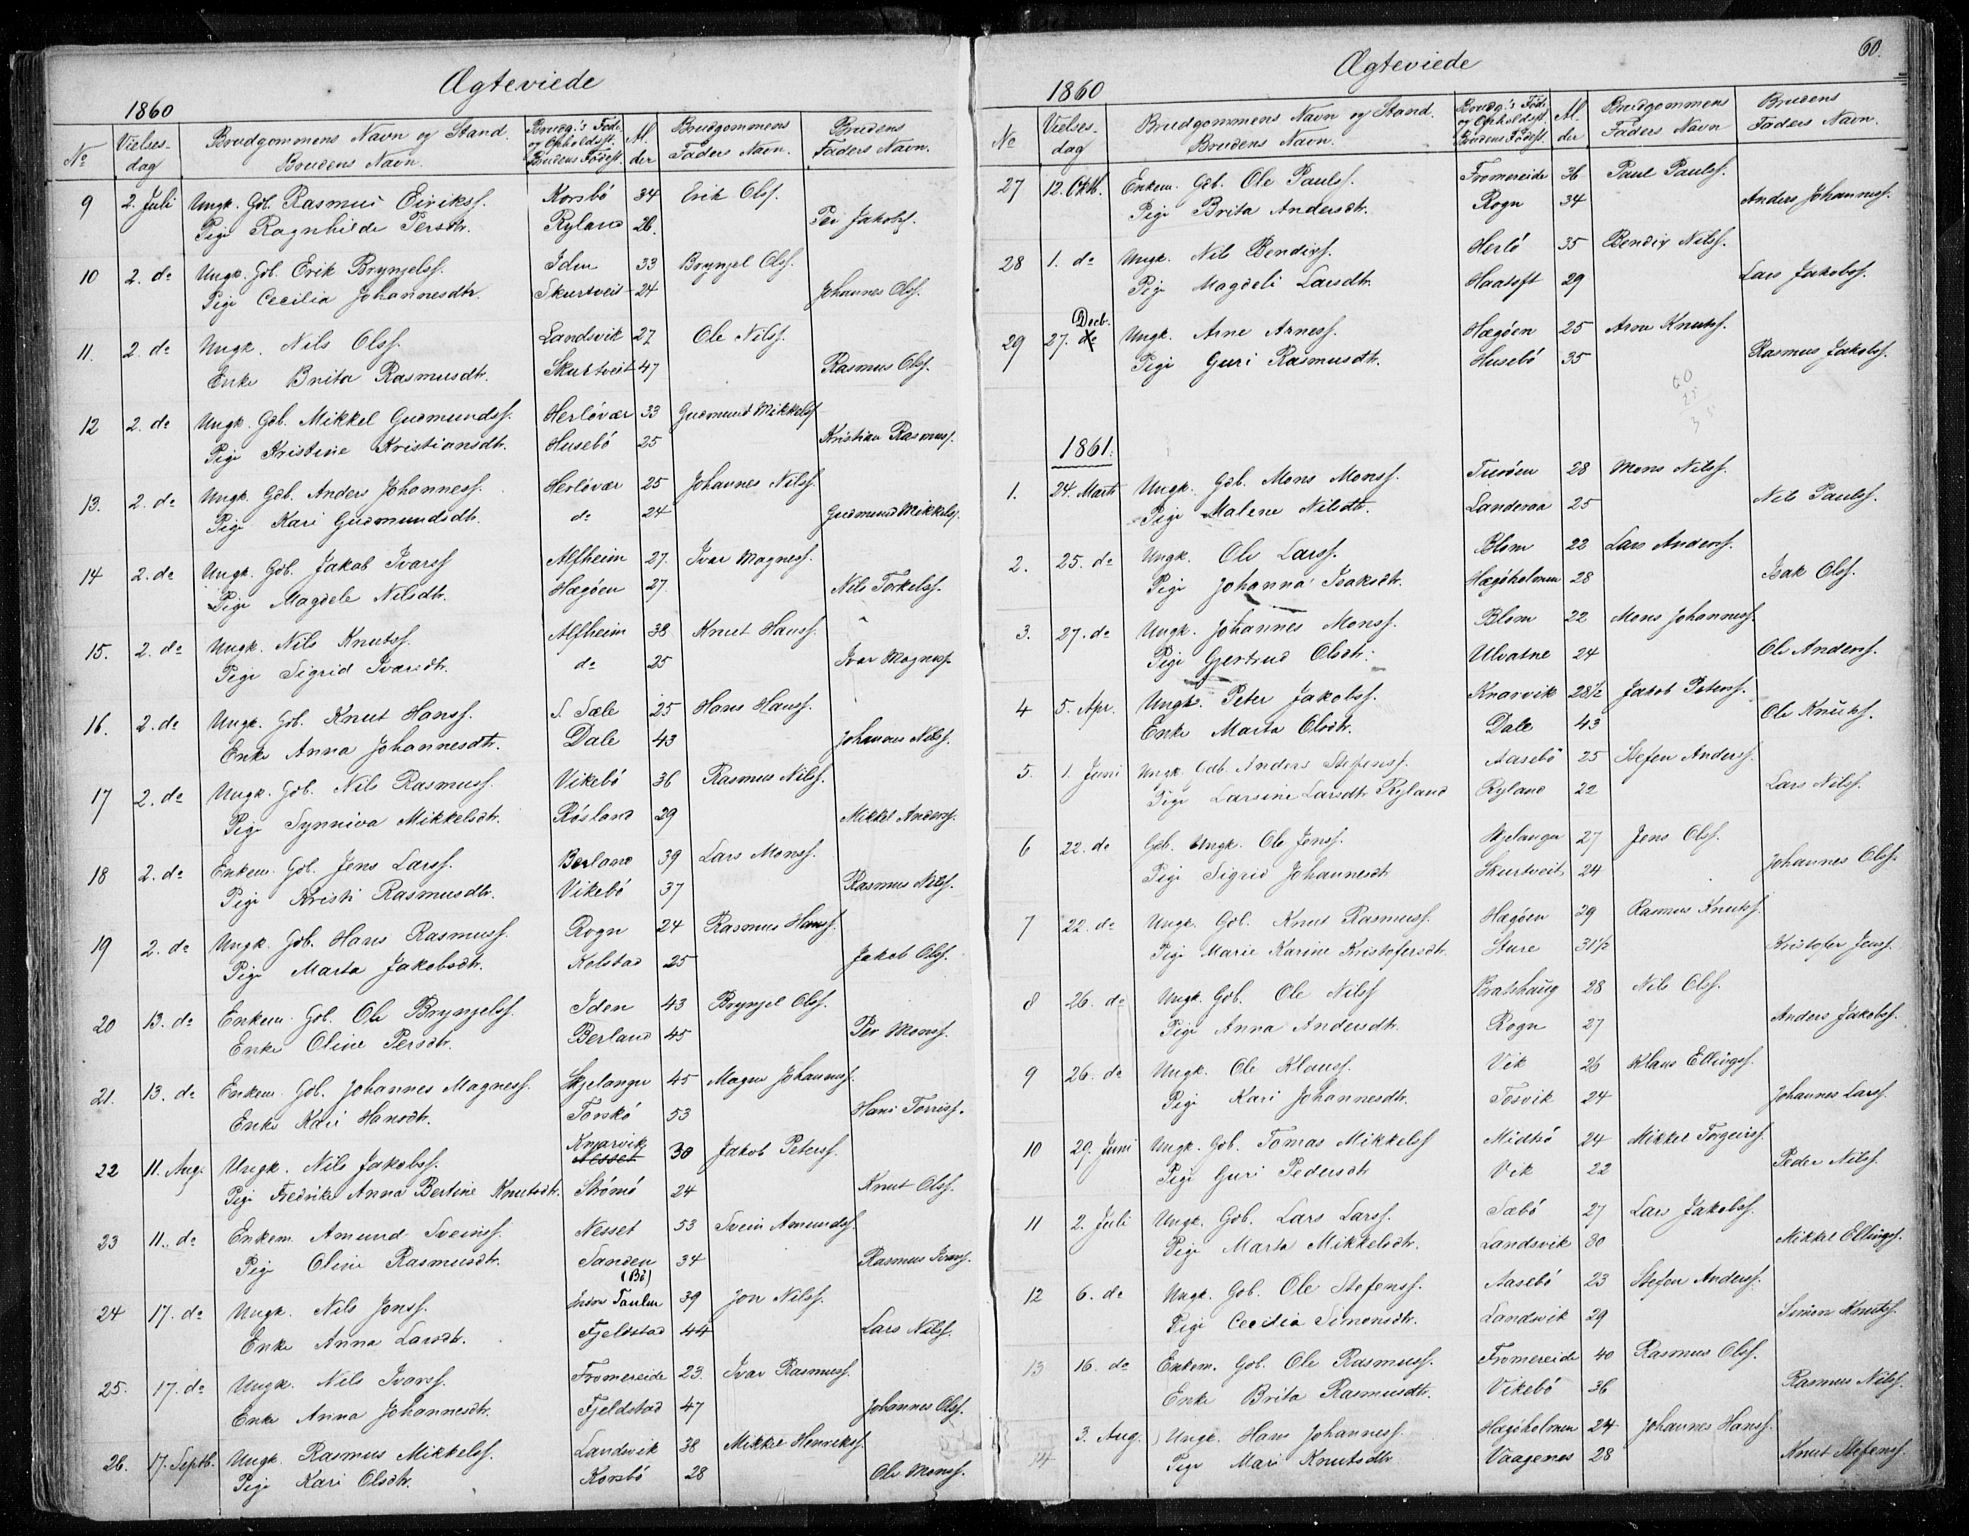 Ægteviede
1860
No Vielsesdag Brudgommens Navn og Stand. Brudens Navn. Brudg.'s Føde og Opholdsst. Brudens Fødest. Alder Brudgommens Faders Navn. Brudens Faders Navn.
9 2. Juli Ungk. Gdb. Rasmus Eiriksf. Korsbö 34 Erik Olsf.
Pige Ragnhilde Persdtr. Ryland 26. Per Jakobsf.
10 2. do Ungk. Gdb. Erik Brynjelsf. Iden 33 Brynjel Olsf.
Pige Cecilia Johannesdtr. Skurtveit 24 Johannes Olsf.
11. 2. do Ungk. Nils Olsf. Landsvik 27 Ole Nilsf.
Enke Brita Rasmusdtr. Skurtveit 47 Rasmus Olsf.
12 2. do Ungk. Gdb. Mikkel Gudmundsf. Herlövær 33 Gudmund Mikkelsf.
Pige Kristine Kristiansdtr. Husebö 25 Kristian Rasmusf.
13. 2. do Ungk. Gdb. Anders Johannesf. Herlövær 25 Johannes Nilsf.
Pige Kari Gudmundsdtr. do 24 Gudmund Mikkelsf.
14 2. do Ungk. Gdb. Jakob Ivarsf. Alfheim 27. Ivar Magnesf.
Pige Magdele Nilsdtr. Hægöen 27 Nils Torkelsf.
15. 2. do Ungk. Nils Knutsf. Alfheim 38 Knut Hansf.
Pige Sigrid Ivarsdtr. do 25 Ivar Magnesf.
16. 2. do Ungk. Gdb. Knut Hansf. S. Sæle 25 Hans Hansf.
Enke Anna Johannesdtr. Dale 43 Johannes Nilsf.
17 2. do Ungk. Gdb. Nils Rasmusf. Vikebö 36 Rasmus Nilsf.
Pige Synniva Mikkelsdtr. Rösland 29 Mikkel Andersf.
18 2. do Enkem. Gdb. Jens Larsf. Berland 39 Lars Monsf.
Pige Kristi Rasmusdtr. Vikebö 37 Rasmus Nilsf.
19 2. do Ungk. Gdb. Hans Rasmusf. Rogn 24 Rasmus Hansf.
Pige Marta Jakobsdtr. Kolstad 25 Jakob Olsf.
20 13. do Enkem. Gdb. Ole Brynjelsf. Iden 43 Brynjel Olsf.
Enke Oline Persdtr. Berland 45 Per Monsf.
21. 13. do Enkem. Gdb. Johannes Magnesf. Skjelanger 45 Magne Johannesf.
Enke Kari Hansdtr. Torskö 53 Hans Torrisf.
22 11. Aug. Ungk. Nils Jakobsf. Knarvik Nesset 30 Jakob Petersf.
Pige Fredrike Anna Bertine Knutsdtr. Strömö 24 Knut Olsf.
23 11. do Enkem. Amund Sveinsf. Nesset 53 Svein Amundsf.
Pige Oline Rasmusdtr. Sanden (Bö) 34 Rasmus
24 17. do Ungk. Nils Jonsf. Toulen 39 Jon Nilsf.
Enke Anna Larsdtr. Fjeldstad 44 Lars Nilsf.
25. 17. do Ungk. Nils Ivarsf. Fromereide 23. Ivar Rasmusf.
Enke Anna Johannesdtr. Fjeldstad 47 Johannes Olsf.
26. 17. Septb. Ungk. Rasmus Mikkelsf. Landsvik 38 Mikkel Henriksf.
Pige Kari Olsdtr. Korsbö 28 Ole Monsf.
Ægteviede
60.
1860
No Vielsesdag Brudgommens Navn og Stand. Brudens Navn. Brudg.'s Føde og Opholdsst. Brudens Fødest. Alder Brudgommens Faders Navn Brudens Faders Navn.
27 12. Oktb. Enkem. Gdb. Ole Paulsf. Fromereide 36 Paul Paulsf.
Pige Brita Andersdtr. Rogn 34 Anders Johannesf.
28 1. do Ungk. Nils Bendixf. Herlö 35 Bendix Nilsf.
Pige Magdeli Larsdtr. Haatoft 29 Lars Jakobsf.
Decb.
29 27. do Ungk. Arne Arnesf. Hægöen 25 Arne Knutsf.
Pige Guri Rasmusdtr. Husebö 35 Rasmus Jakobsf.
60
25
1861.
1. 24. Marts Ungk. Gdb. Mons Monsf. Turöen 28 Mons Nilsf.
Pige Malene Nilsdtr. Landeraa 25 Nils Paulsf.
2. 25. do Ungk. Ole Larsf. Blom 22 Lars Andersf.
Pige Johanna Isaksdtr. Hægöholmen 28 Isak Olsf.
3. 27. do Ungk. Johannes Monsf. Blom 22 Mons Johannesf.
Pige Gjertrud Olsdtr. Ulvatne 24 Ole Andersf.
4 5. Apr. Ungk. Peter Jakobsf. Knarvik 28½ Jakob Petersf.
Enke Marta Olsdtr. Dale 43 Ole Knutsf.
5. 1. Juni Ungk. Gdb. Anders Stefensf. Aasebö 25 Stefen Andersf.
Pige Larsine Larsdtr. Ryland Ryland 22 Lars Nilsf.
6 22. do Gdb. Ungk. Ole Jensf. Skjelanger 27 Jens Olsf.
Pige Sigrid Johannesdtr. Skurtveit 24 Johannes Olsf.
7 22. do Ungk. Gdb. Knut Rasmusf. Hægöen 29 Rasmus Knutsf.
Pige Marie Karine Kristofersdtr. Sture 31½ Kristofer Jensf.
8 26. do Ungk. Gdb. Ole Nilsf. Bratshaug 28 Nils Olsf.
Pige Anna Andersdtr. Rogn 27 Anders Jakobsf.
9 26. do Ungk. Ole Klausf. Vik 26 Klaus Ellingsf.
Pige Kari Johannesdtr. Tosvik 24 Johannes Larsf.
10 29. Juni Ungk. Gdb. Tomas Mikkelsf. Midtö 24 Mikkel Torgeirsf.
Pige Guri Pedersdtr. Vik 22 Peder Nilsf.
11 2. Juli Ungk. Gdb. Lars Larsf. Sæbö 27 Lars Jakobsf.
Pige Marta Mikkelsdtr. Landsvik 30 Mikkel Ellingsf.
12 6. do Ungk. Gdb. Ole Stefensf. Aasebö 23 Stefen Andersf.
Pige Cecilia Simonsdtr. Landsvik 29 Simon Knutsf.
13 16. do Enkem. Gdb. Ole Rasmusf. Fromereide 40 Rasmus Olsf.
Enke Brita Rasmusdtr. Vikebö 36 Rasmus Nilsf.
14 3. Aug. Ungk. Hans Johannesf. Hægöholmen 24 Johannes Hansf.
Pige Mari Knutsdtr. Vaagenes 28 Knut Stefensf.